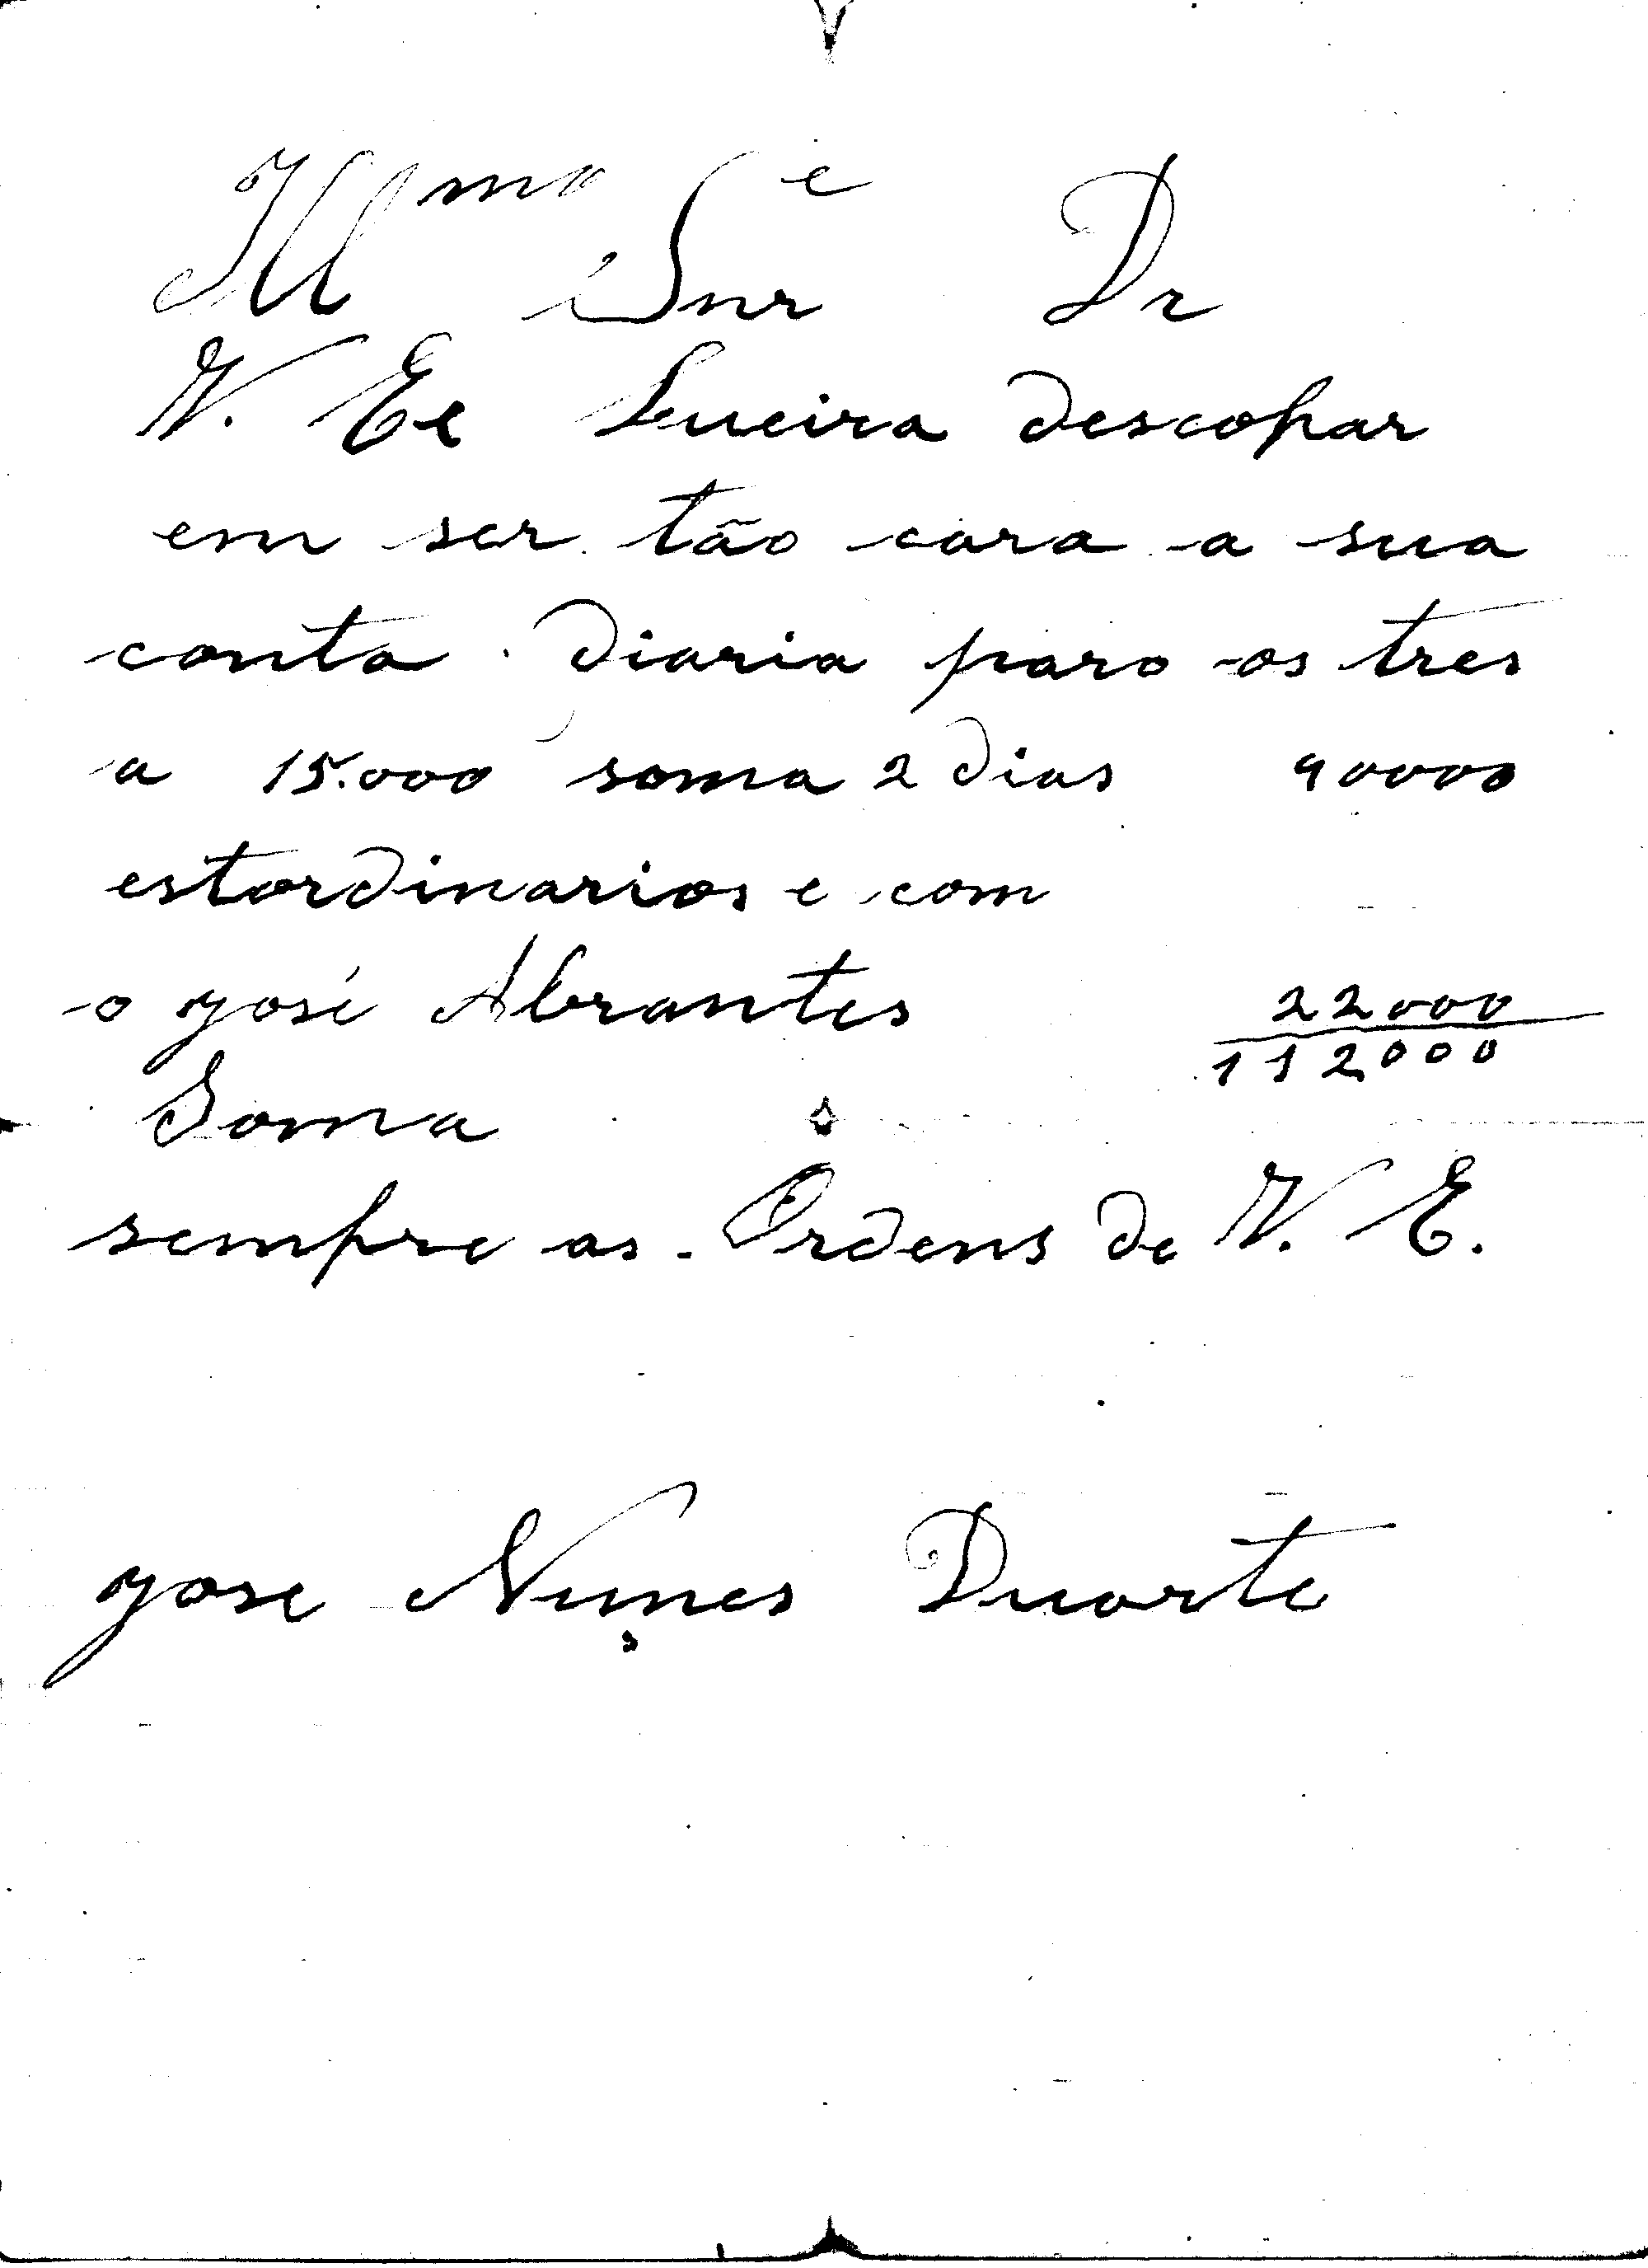 Illmo e Snr Dr
V. Ex Queira descopar
em ser tão cara a sua
conta. diaria para os tres
a 15.000 soma 2 dias 90000
estordinarios e com
o José Abrantes 22000
112000
Soma
sempre as Ordens de V. E.
Jose Nunes Duarte